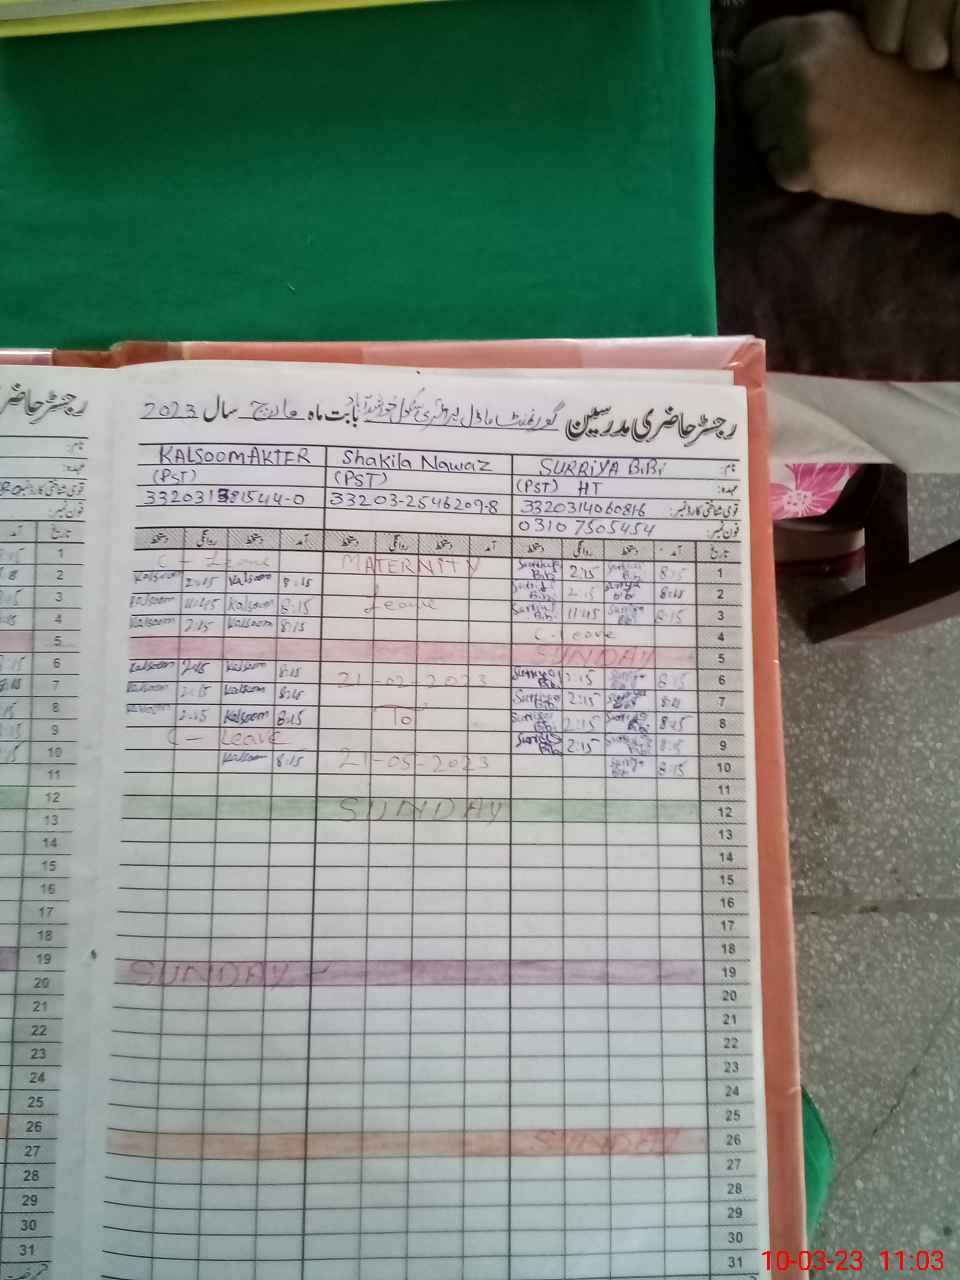 رجسٹر حاضری مدرسین گورنمنٹ ماڈل پرائمری سکول بابت ماہ مارچ سال 2023
نام: SURRIYA BiBi Shakila Nawaz KALSOOM AKTER
عہدہ: (PST) HT (PST) (PST)
قومی شناختی کارڈ نمبر: 3320314060816 33203-2546209-8
فون نمبر: 03107505454
تاریخ آمد دستخط روانگی دستخط آمد دستخط روانگی دستخط آمد دستخط روانگی دستخط
1 8:15 Surriya Bibi 2:15 Surriya Bibi MATERNITY C - Leave
2 8:15 Surriya Bibi 2:15 Surriya Bibi 8:15 Kalsoom 2:15 Kalsoom
3 8:15 Surriya Bibi 11:45 Surriya Bibi Leave 8:15 Kalsoom 11:45 Kalsoom
4 C-Leave 8:15 Kalsoom 2:15 Kalsoom
5 SUNDAY
6 8:15 Surriya Bibi 2:15 Surriya Bibi 21-02-2023 8:15 Kalsoom 2:15 Kalsoom
7 8:15 Surriya Bibi 2:15 Surriya Bibi 8:15 Kalsoom 2:15 Kalsoom
8 8:15 Surriya Bibi 2:15 Surriya Bibi To 8:15 Kalsoom 2:15 Kalsoom
9 8:15 Surriya Bibi 2:15 Surriya Bibi C - Leave
10 8:15 Surriya Bibi 21-05-2023 8:15 Kalsoom
11
12 SUNDAY
13
14
15
16
17
18
19 SUNDAY
20
21
22
23
24
25
26 SUNDAY
27
28
29
30
31
رجسٹر حاضری
نام:
عہدہ:
قومی شناختی کارڈ نمبر:
فون نمبر:
تاریخ آمد
1
2
3
4
5
6
7
8
9
10
11
12
13
14
15
16
17
18
19
20
21
22
23
24
25
26
27
28
29
30
31
10-03-23 11:03